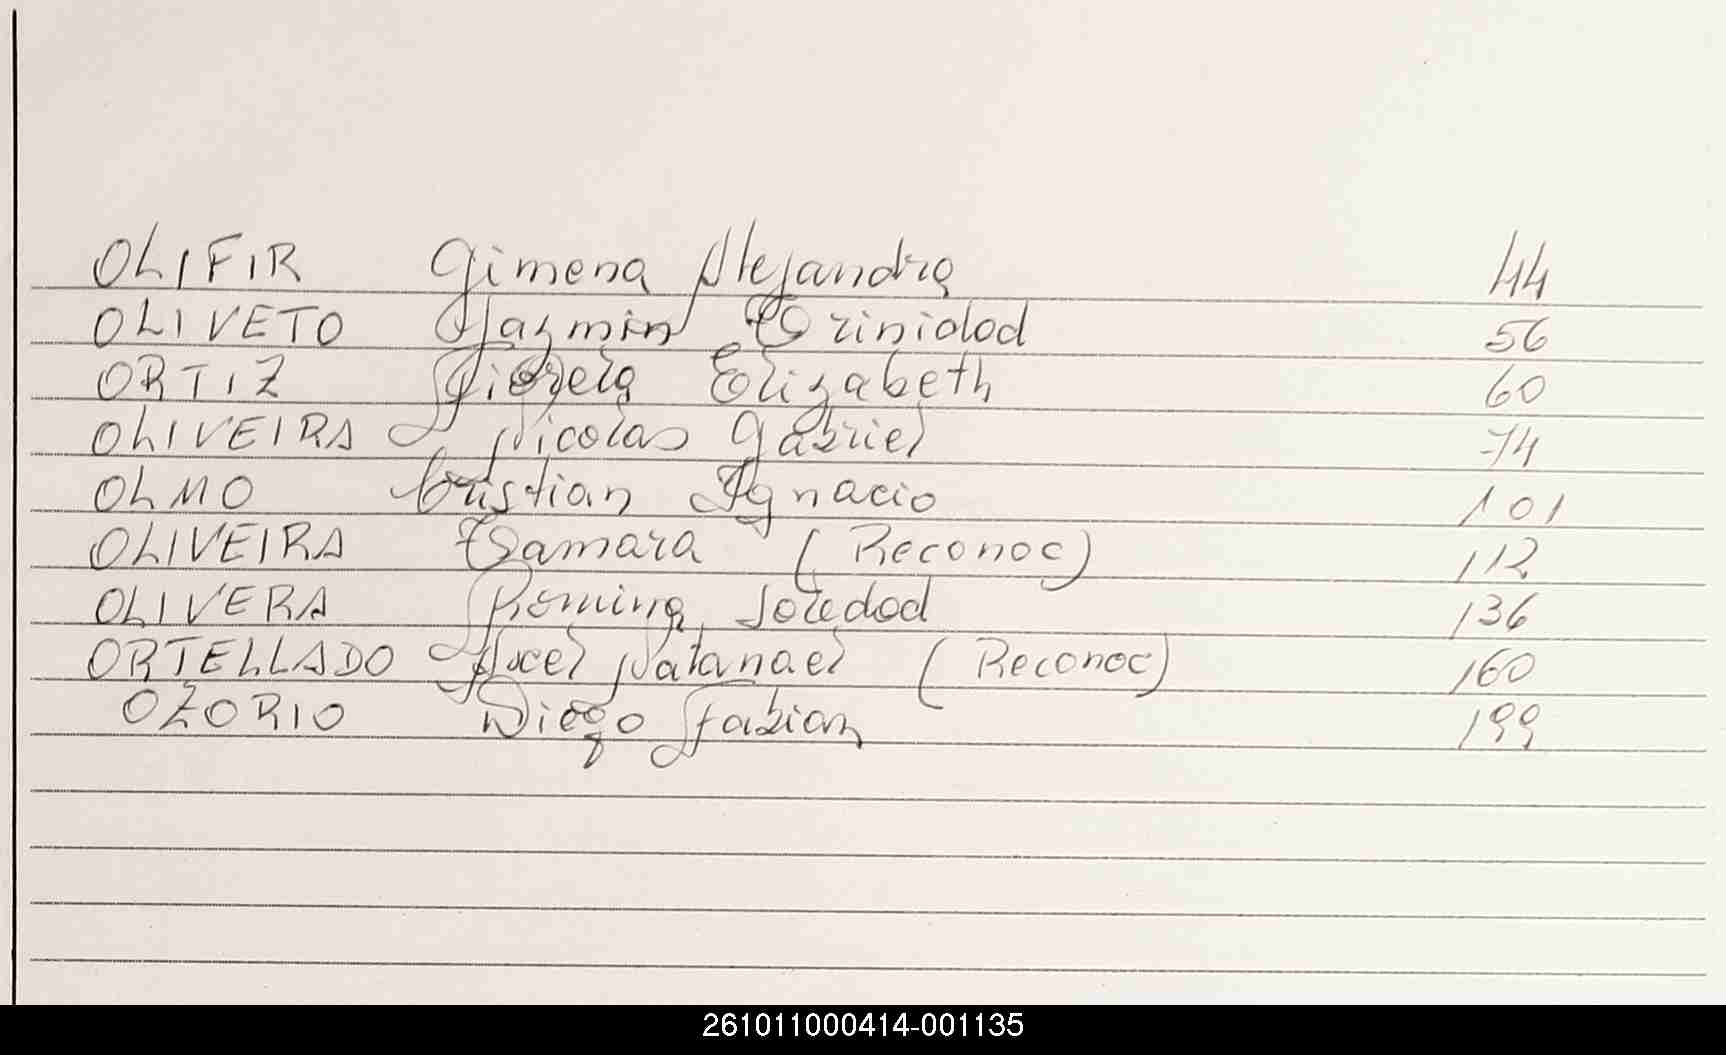 OLIFIR Gimena Alejandra 44
OLIVETO Yazmin Trinidad 56
ORTIZ Elizabeth 60
OLIVEIRA Nicolas Gabriel 74
OLMO Cristian Ignacio 101
OLIVEIRA Tamara (Reconoc) 112
OLIVERA Romina Soledad 136
ORTELLADO Natanael (Reconoc) 160
OZORIO Diego Fabian 199
261011000414-001135